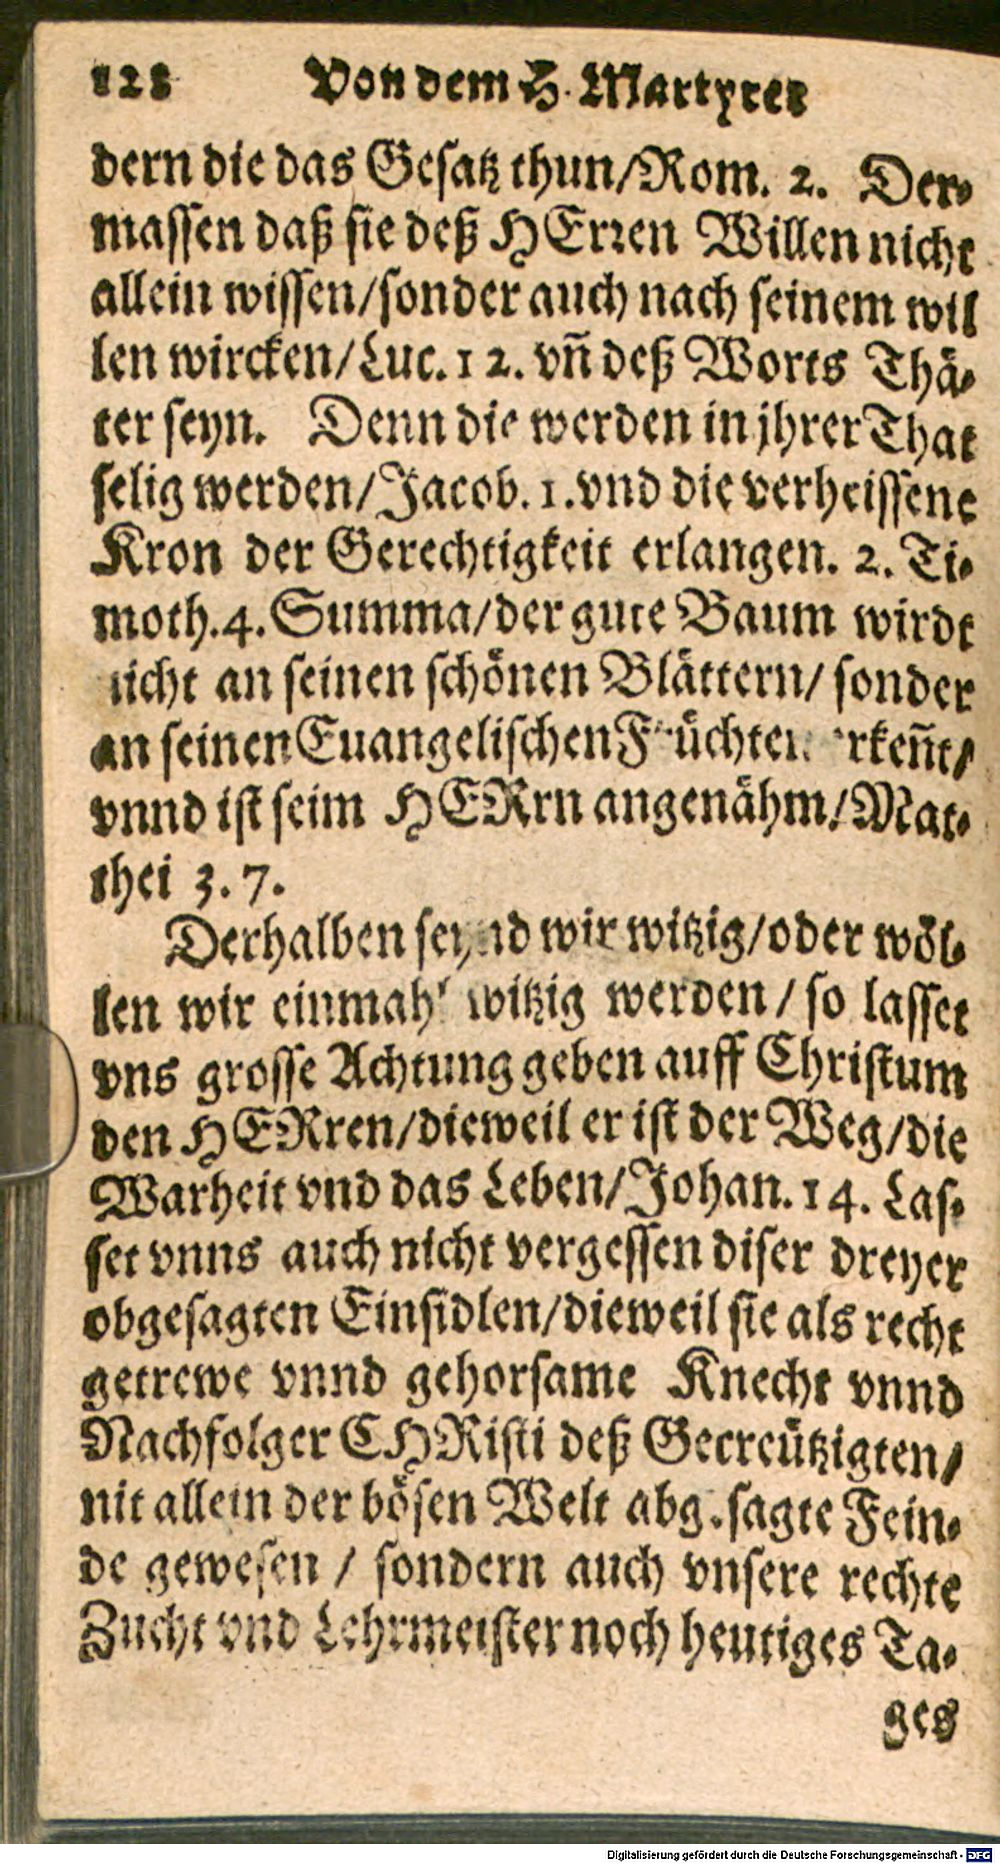 128 Von dem H. Martyrer
dern die das Gesatz thun/Rom. 2. Der-
massen daß sie deß HErren Willen nicht
allein wissen/sonder auch nach seinem wil
len wircken/Luc. 12. vn̄ deß Worts Thä-
ter seyn. Denn die werden in jhrer That
selig werden/Jacob. 1. vnd die verheissene
Kron der Gerechtigkeit erlangen. 2. Ti-
moth. 4. Summa/der gute Baum wirdt
nicht an seinen schönen Blättern/ sonder
an seinen Euangelischen Früchten erken̄t/
vnnd ist seim HERrn angenähm/Mat-
thei 3. 7.
Derhalben seynd wir witzig/oder wöl-
len wir einmahl witzig werden/ so lasset
vns grosse Achtung geben auff Christum
den HERren/dieweil er ist der Weg/die
Warheit vnd das Leben/Johan. 14. Las-
set vnns auch nicht vergessen diser dreyer
obgesagten Einsidlen/dieweil sie als recht
getrewe vnnd gehorsame Knecht vnnd
Nachfolger CHRisti deß Gecreützigten/
nit allein der bösen Welt abgesagte Fein-
de gewesen / sondern auch vnsere rechte
Zucht vnd Lehrmeister noch heutiges Ta-
ges
Digitalisierung gefördert durch die Deutsche Forschungsgemeinschaft - DFG